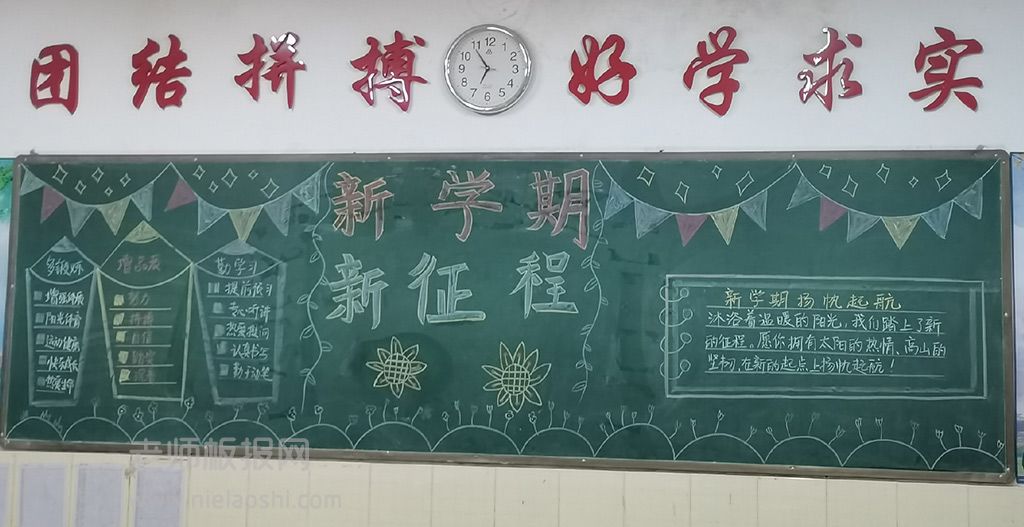 团结拼搏 好学求实
12
11
1
10
2
9
3
8
4
7
5
6
新学期
新征程
多锻炼
增强体质
阳光体育
运动健康
快乐成长
增品表
努力
勤学习
提前预习
专心听讲
热爱提问
认真书写
勤于动笔
新学期扬帆起航
沐浴着温暖的阳光,我们踏上了新
的征程。愿你拥有太阳的热情、高山的
坚韧,在新的起点上扬帆起航!
老师板报网
nielaoshi.com